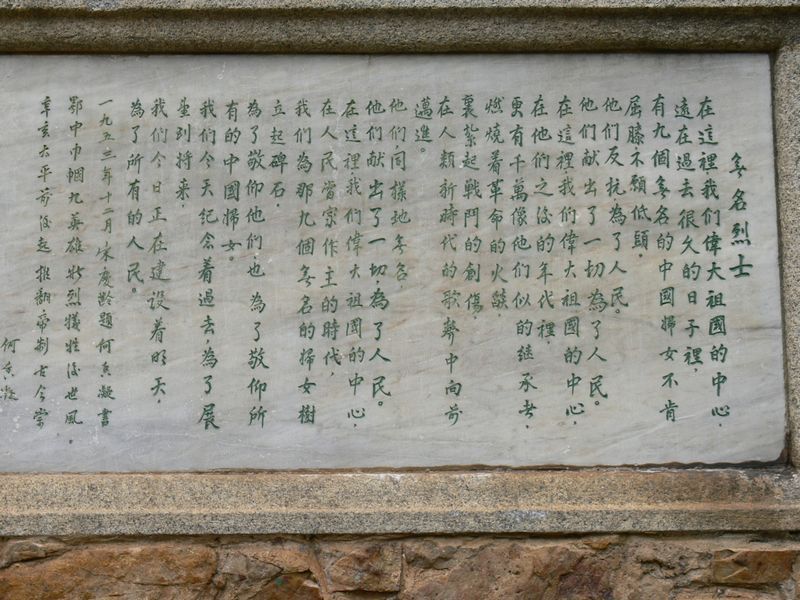 無名烈士
在這裡我们偉大祖國的中心，
遠在過去很久的日子裡，
有九個無名的中國婦女不肯
屈膝不願低頭，
他们反抗，為了人民。
他们献出了一切，為了人民。
在這裡，我们偉大祖國的中心，
在他们之后的年代裡，
更有千萬像他们似的继承者，
燃燒着革命的火燄，
裹紮起戰鬥的創傷，
在人類新時代的歌聲中向前
邁進。
他们，同樣地無名
他们献出了一切，為了人民。
在這裡，我们偉大祖國的中心，
在人民當家作主的時代，
我们為那九個無名的婦女樹
立起碑石，
為了敬仰他们，也為了敬仰所
有的中國婦女。
我们今天纪念着過去，為了展
望到將来，
我们今日正在建設着明天，
為了所有的人民。
一九五三年十二月宋慶齡題何香凝書
鄂中巾帼九英雄壮烈犠牲後世風。
辛亥太平前後起推翻帝制古今崇
何香凝